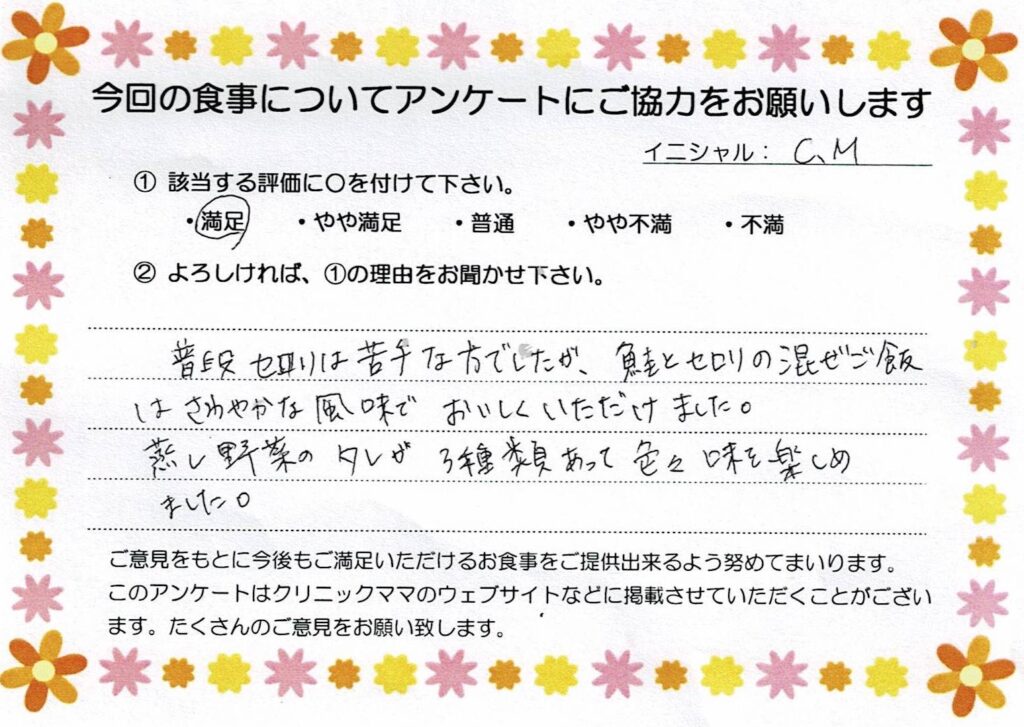 今回の食事についてアンケートにご協力をお願いします
イニシャル： C、M
① 該当する評価に〇を付けて下さい。
・満足 ・やや満足 ・普通 ・やや不満 ・不満
② よろしければ、①の理由をお聞かせ下さい。
普段セロリは苦手な方でしたが、鮭とセロリの混ぜご飯
はさわやかな風味でおいしくいただけました。
蒸し野菜のタレが3種類あって色々味を楽しめ
ました。
ご意見をもとに今後もご満足いただけるお食事をご提供出来るよう努めてまいります。
このアンケートはクリニックママのウェブサイトなどに掲載させていただくことがござい
ます。たくさんのご意見をお願い致します。